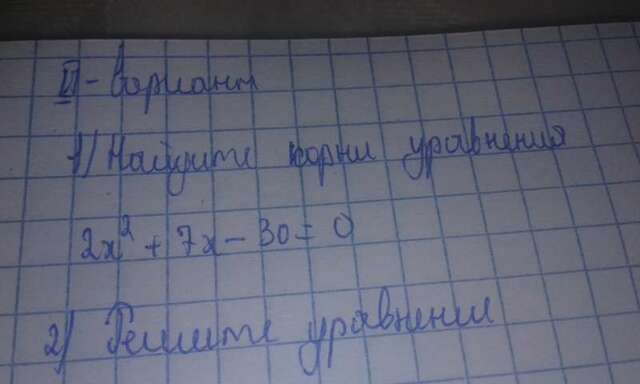 II - вариант
1) Найдите корни уравнения
2x² + 7x - 30 = 0
2) Решите уравнение